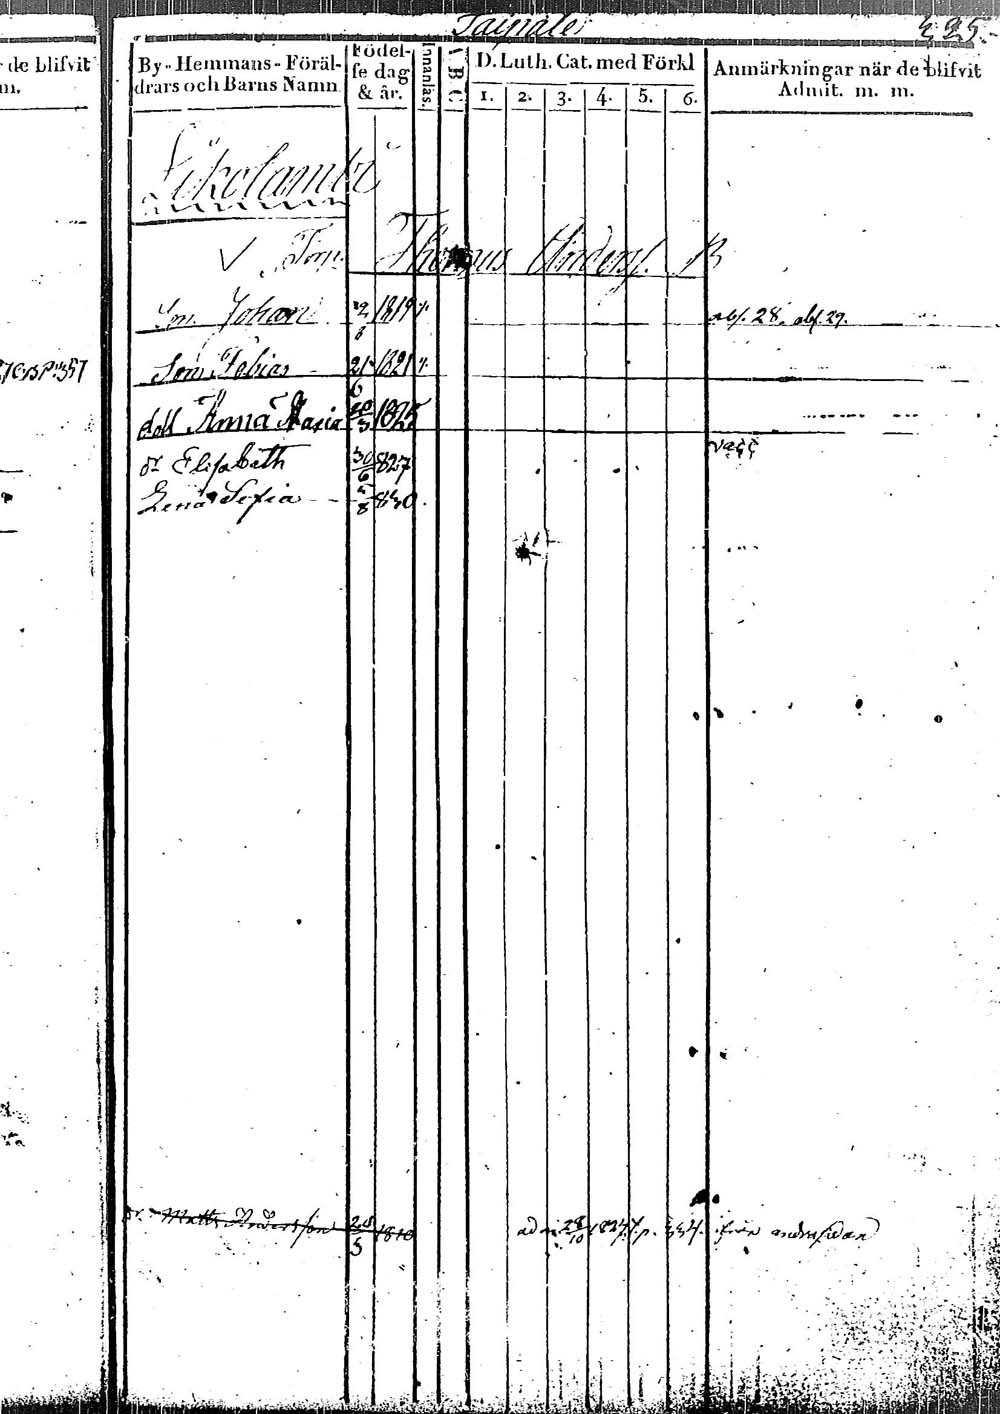 Taipale 325.
de blifvit
m.
By-Hemmans-Föräl-
drars och Barns Namn
Födel-
se dag
& år.
Innanläs.
A B C
D. Luth. Cat. med Förkl
1. 2. 3. 4. 5. 6.
Anmärkningar när de blifvit
Admit. m. m.
Likolambi
√ Torp. Thomas Anders. B
Son Johan 1819 abs. 28. abs. 29.
Son Tobias 21/6 1821
dott Anna Maria 1825
vacc
dr Elisabeth 30/6 827
Lena Sofia 5/8 830.
dr. Matts Andersson 28/5 1810 adm 28/10 1827 p. 334. från andra sidan